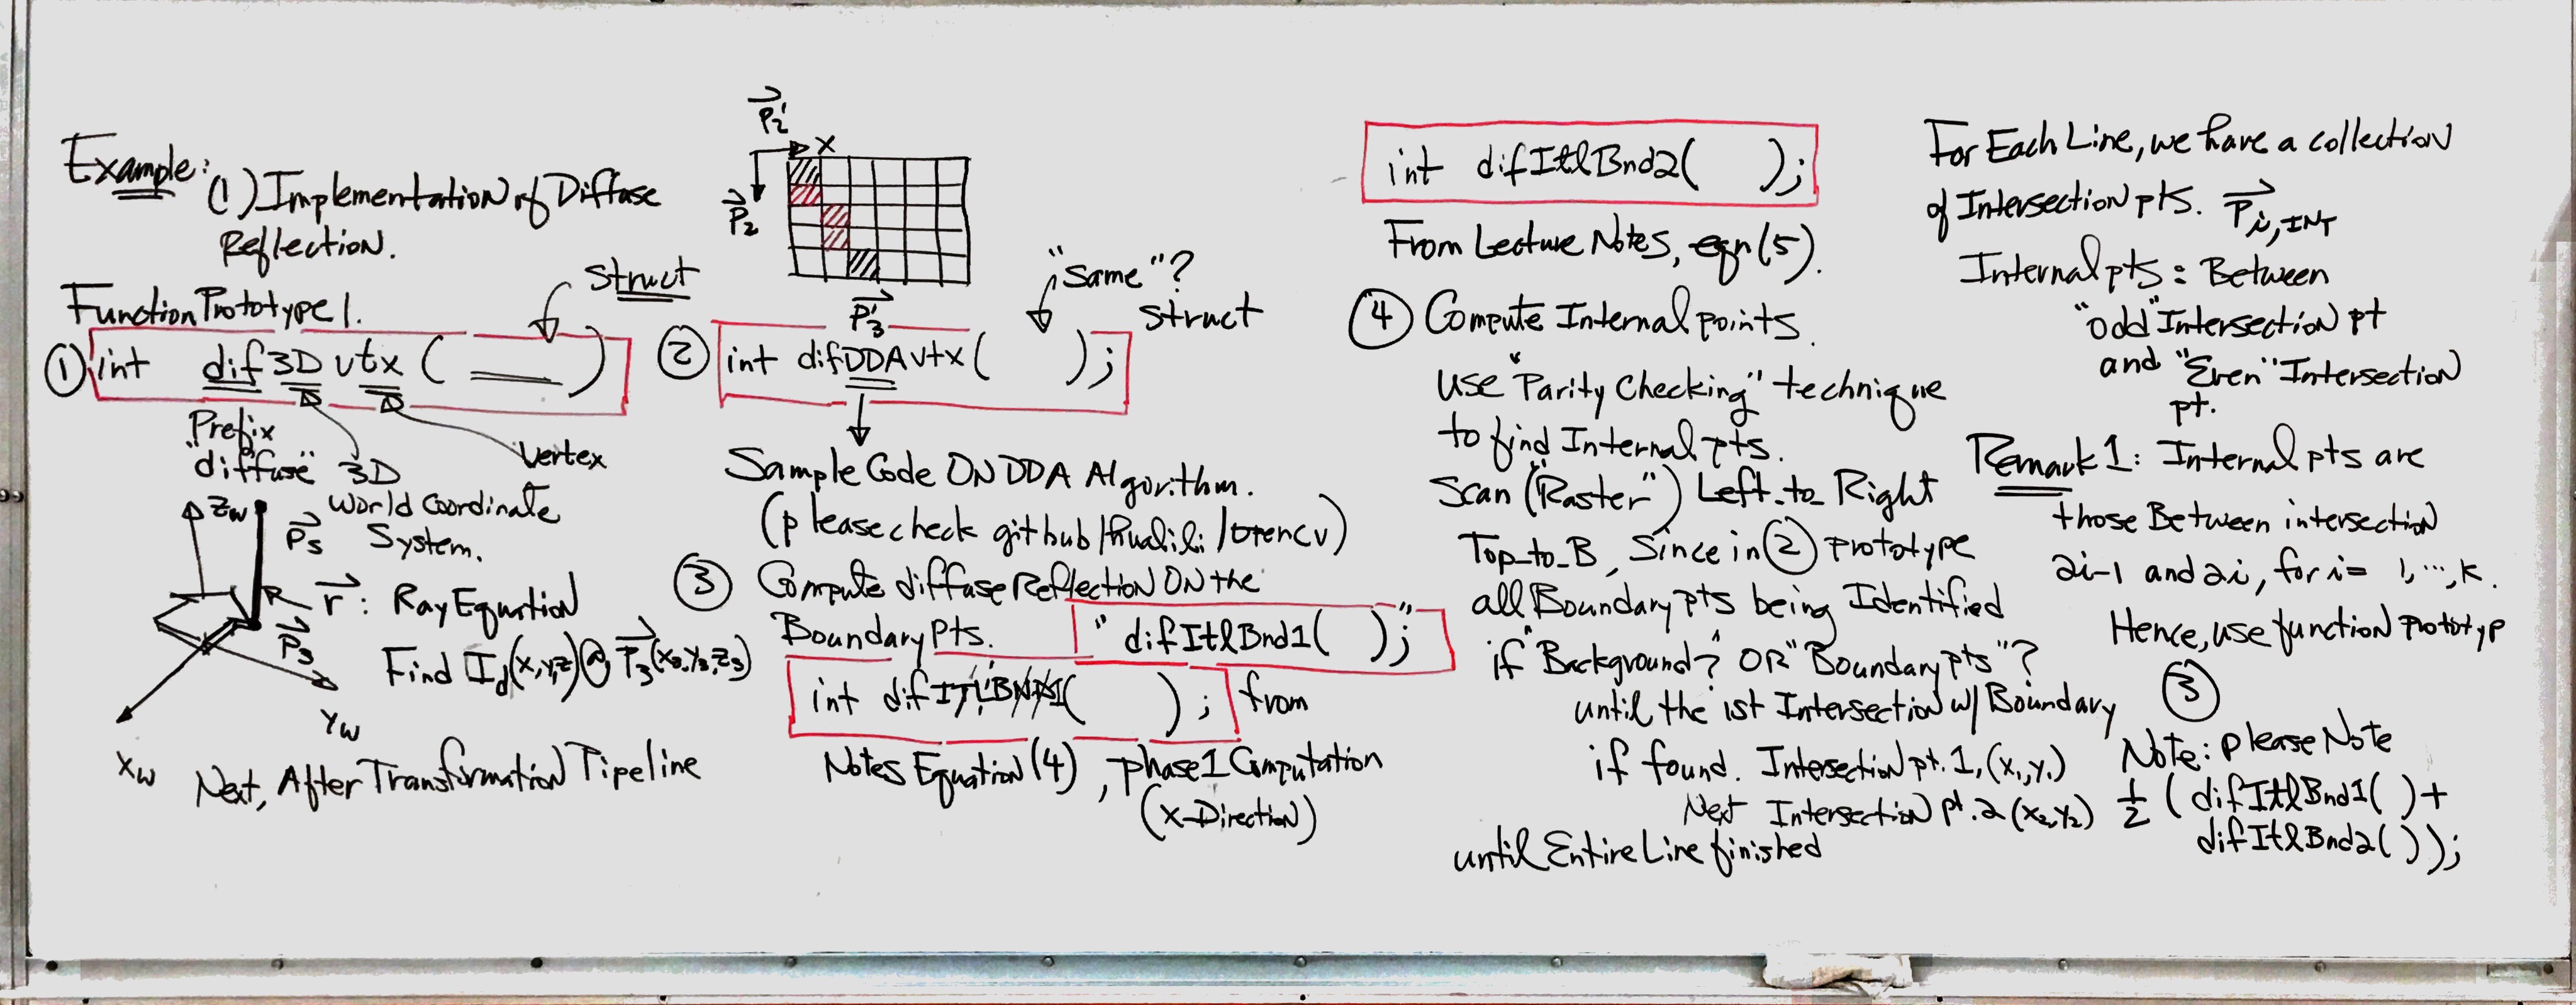 Example:
(1) Implementation of Diffuse
Reflection.
Function Prototype 1.
struct
① int dif3Dvtx( )
Prefix
"diffuse"
3D
World Coordinate
System.
Vertex
Zw
Ps
r : Ray Equation
P3
Find Id(x,y,z)@ P3(x3,y3,z3)
Yw
Xw
Next, After Transformation Pipeline
P2'
X
P2
P3'
"Same"?
struct
② int difDDAvtx( );
Sample Code ON DDA Algorithm.
(please check github/hualili/opencv)
③ Compute diffuse Reflection ON the
Boundary Pts. " difItlBnd1( );"
int dif ( ); from
Notes Equation (4), phase1 Computation
(X-Direction)
int difItlBnd2( );
From Lecture Notes, eqn(5).
④ Compute Internal points.
use "Parity Checking" technique
to find Internal pts.
Scan ("Raster") Left-to-Right
Top-to-B, Since in ② prototype
all Boundary pts being Identified
if "Background"? OR "Boundary pts"?
until the 1st Intersection w/ Boundary
if found. Intersection pt. 1, (x1,y1)
Next Intersection pt. 2 (x2,y2)
until Entire Line finished
For Each Line, we have a collection
of Intersection pts. Pi,INT
Internal pts: Between
"odd" Intersection pt
and "Even" Intersection
pt.
Remark 1: Internal pts are
those Between intersection
2i-1 and 2i, for i= 1,...,K.
Hence, use function prototyp
③
Note: please Note
1/2 ( difItlBnd1( ) +
difItlBnd2( ));